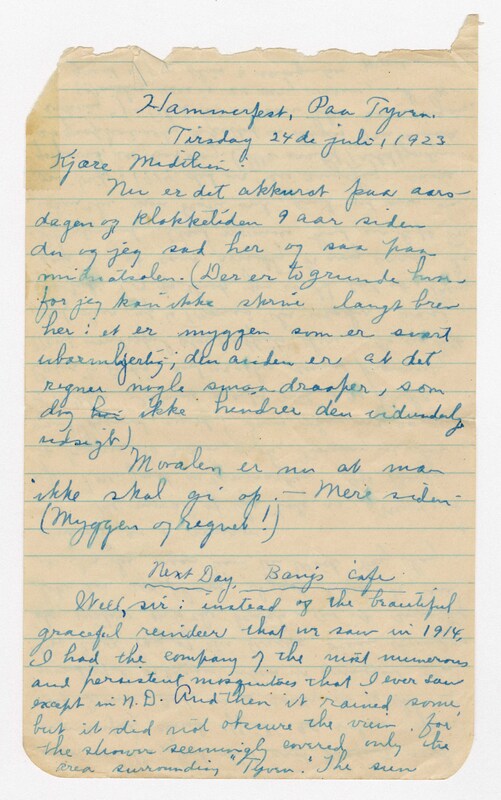 Hammerfest, Paa Tyven.
Tirsdag 24de juli, 1923
Kjære
Nu er det akkurat paa aars-
dagen og klokketiden 9 aar siden
du og jeg sad her og saa paa
midnatsolen. (Der er to grunde hvor-
for jeg kan ikke skrive langt brev
her: et er myggen som er svært
ubarmhjertig; den anden er at det
regner nogle smaa draaper, som
dog ikke hindrer den vidunderlige
udsigt)
Moralen er nu at man
ikke skal gi op. — Mere siden —
(Myggen og regnet!)
Next Day, Bangs cafe
Well, sir: instead of the beautiful
graceful reindeer that we saw in 1914,
I had the company of the most numerous
and persistent mosquitoes that I ever saw
except in N.D. And then it rained some
but it did not obscure the view, for
the shower seemingly covered only the
area surrounding "Tyven." The sun